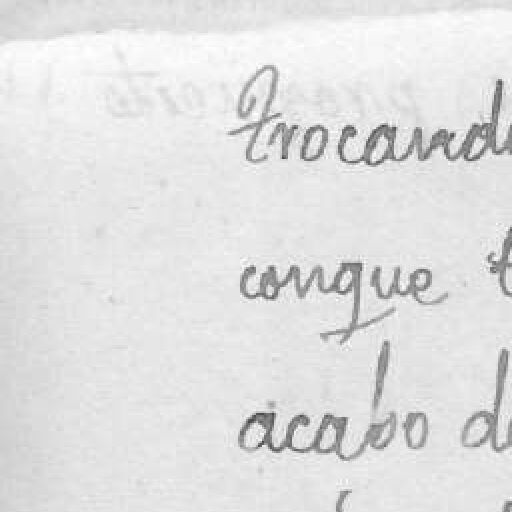 trocand
conque t
acabo de